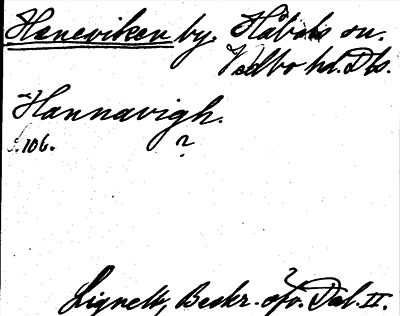 Haneviken by, Håbols sn.
Vedbo hd. Dls.
"Hannavigh.
s. 106. ?
Lignell, Beskr. öfv. Dal. II.